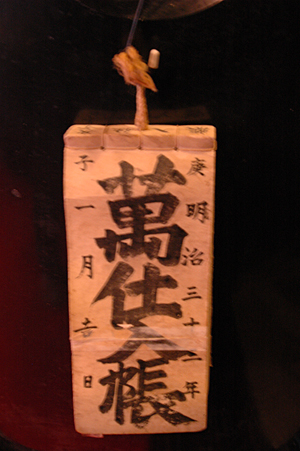 庚明治三十三年
萬仕入帳
子一月吉日